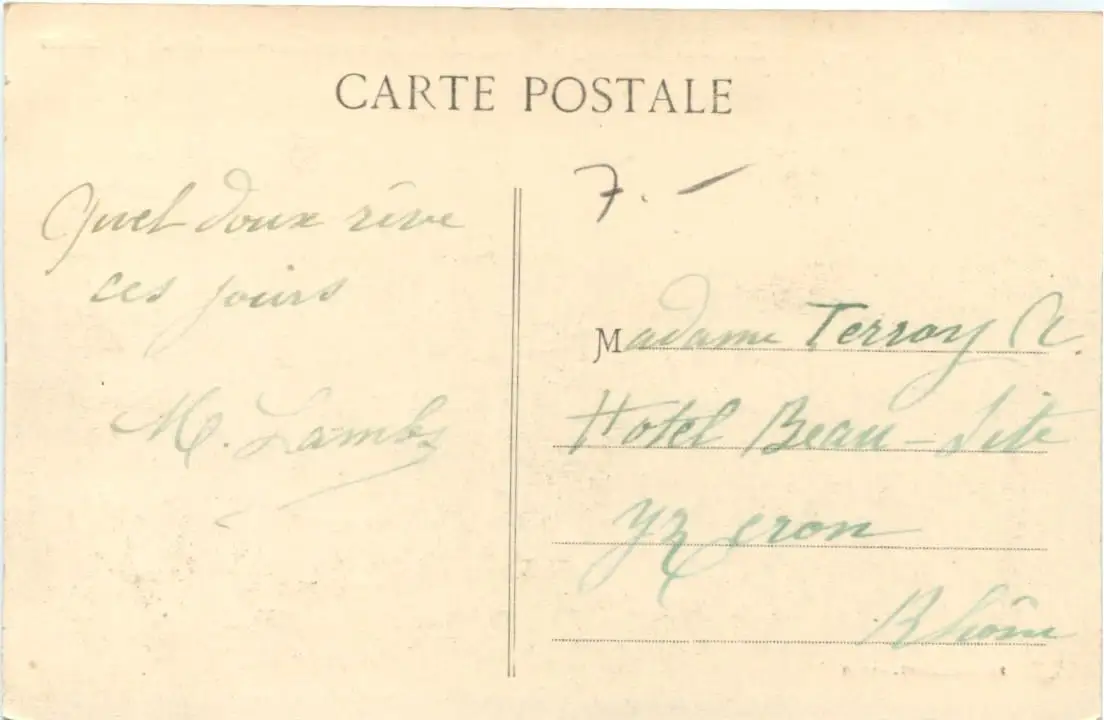 CARTE POSTALE
Quel doux rêve
ces jours
M. Lambs
7.-
Madame Terray R.
Hotel Beau-Site
Yzeron
Rhône